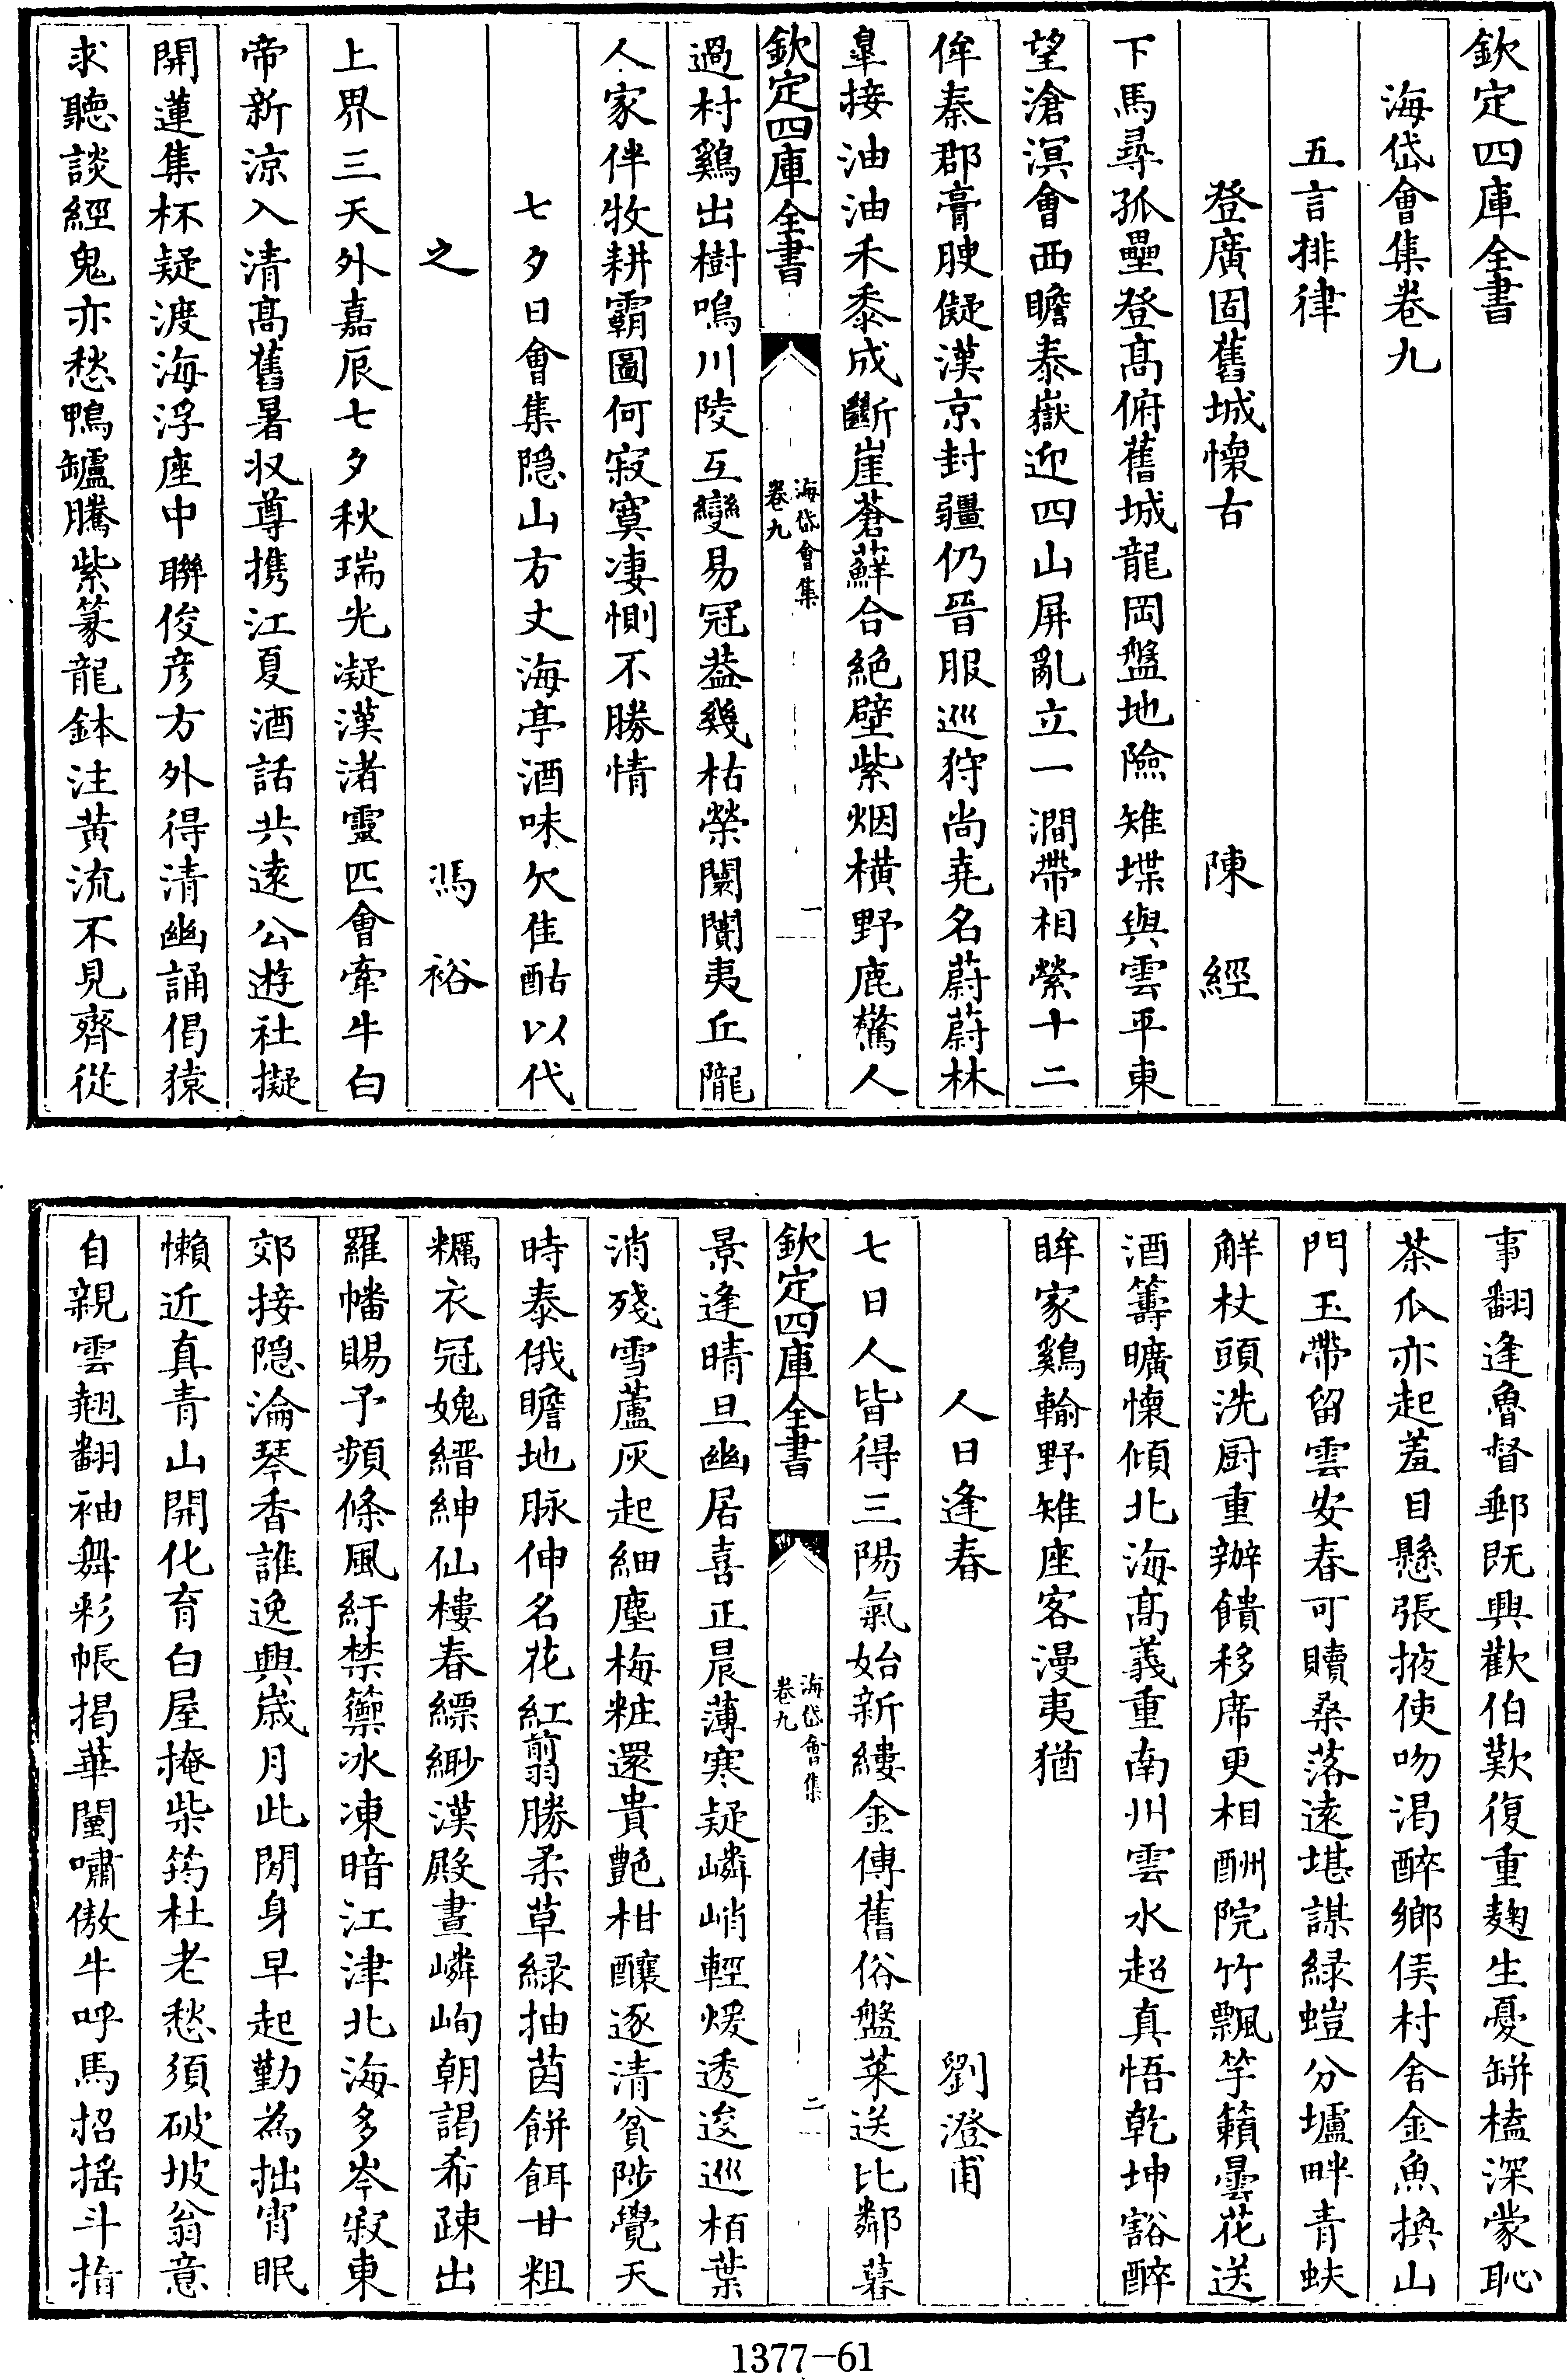 欽定四庫全書
海岱會集卷九
五言排律
登廣固舊城懷古 陳經
下馬尋孤壘登髙俯舊城龍岡盤地險雉堞與雲平東
望滄溟會西瞻泰嶽迎四山屏亂立一澗帶相縈十二
侔秦郡膏腴儗漢京封疆仍晉服巡狩尚堯名蔚蔚林
臯接油油禾黍成斷崖蒼蘚合絶壁紫烟橫野鹿驚人
欽定四庫全書
海岱會集
卷九
一
過村鷄出樹鳴川陵互變易冠葢幾枯榮闤闠夷丘隴
人家伴牧耕霸圖何寂寞凄惻不勝情
七夕日會集隠山方丈海亭酒味欠佳酤以代
之 馮裕
上界三天外嘉辰七夕秋瑞光凝漢渚靈匹會牽牛白
帝新涼入清髙舊暑收尊携江夏酒話共逺公遊社擬
開蓮集杯疑渡海浮座中聯俊彦方外得清幽誦倡猿
求聽談經鬼亦愁鴨罏騰紫篆龍鉢注黄流不見齊從
事翻逢魯督郵既興歡伯歎復重麹生憂缾榼深蒙恥
茶瓜亦起羞目懸張掖使吻渴醉鄉侯村舍金魚換山
門玉帶留雲安春可贖桑落逺堪謀緑螘分壚畔青蚨
觧杖頭洗厨重辦饋移席更相酬院竹飄竽籟曇花送
酒籌曠懷傾北海髙義重南州雲水超真悟乾坤豁醉
眸家鷄輸野雉座客漫夷猶
人日逢春 劉澄甫
七日人皆得三陽氣始新縷金傳舊俗盤菜送比鄰暮
欽定四庫全書
海岱會集
卷九
二
景逢晴旦幽居喜正晨薄寒疑嶙峭輕煖透逡巡栢葉
消殘雪蘆灰起細塵梅粧還貴艶柑釀逐清貧陟覺天
時泰俄瞻地脉伸名花紅翦勝柔草緑抽茵餅餌甘粗
糲衣冠媿縉紳仙樓春縹緲漢殿晝嶙峋朝謁希踈出
羅幡賜予頻條風紆禁籞冰凍暗江津北海多岑寂東
郊接隠淪琴香誰逸興歳月此閒身早起勤為拙宵眠
懶近真青山開化育白屋掩柴筠杜老愁須破坡翁意
自親雲翹翻袖舞彩帳揭華闉嘯傲牛呼馬招揺斗指
1377—61